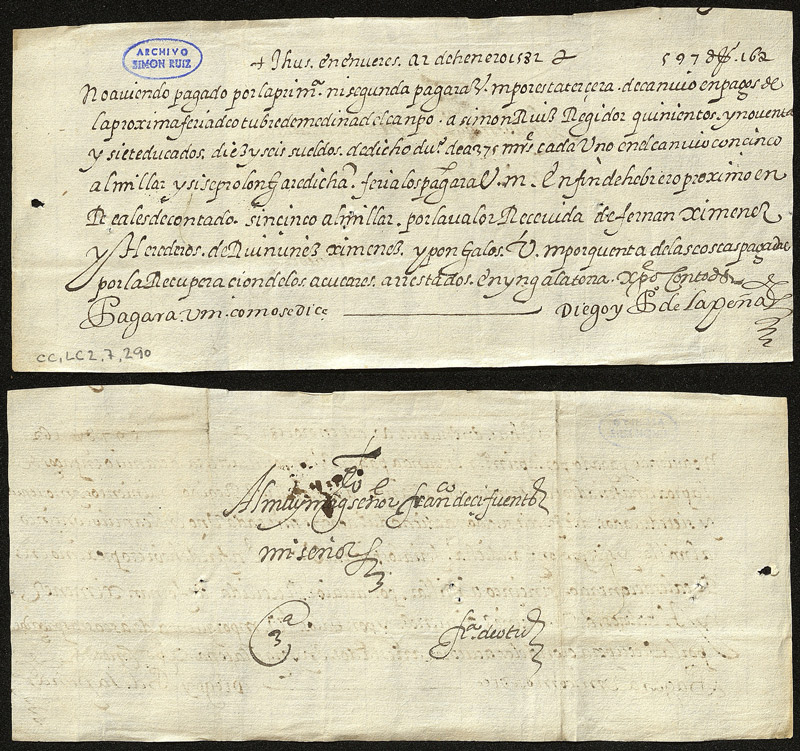 ARCHIVO
SIMON RUIZ
+ Jhus. en enveres. a 2 de henero 1582
No aviendo pagado por la prim.ª ni segunda pagara V. m por esta terçera. de canvio en pagos de
la proxima feria de otubre de medina del canpo. a simon Ruiz Regidor quinientos. y noventa
y siete ducados. diez y seis sueldos. de dicho du.º de a 375 mrs. cada Uno en el canvio con cinco
al millar. y si se prolongare dicha. feria los pagara V. m. En fin de hebrero proximo en
Reales de contado. sin cinco al millar. por la valor Recevida de fernan Ximenez
y Herederos. de Ruinunez Ximenez. y pongalos. V. m por quenta de las costas pagadas
por la Recuperacion de los açucares. arrestados. En yngalatona. Xpo Con todos
Pagara. Vm. como se diçe Diego y Pº de la peña
CC, LC 2, 7, 290
Al muy mag.co señor fran.co de cifuentes
mi señor
3ª
fª. de otu